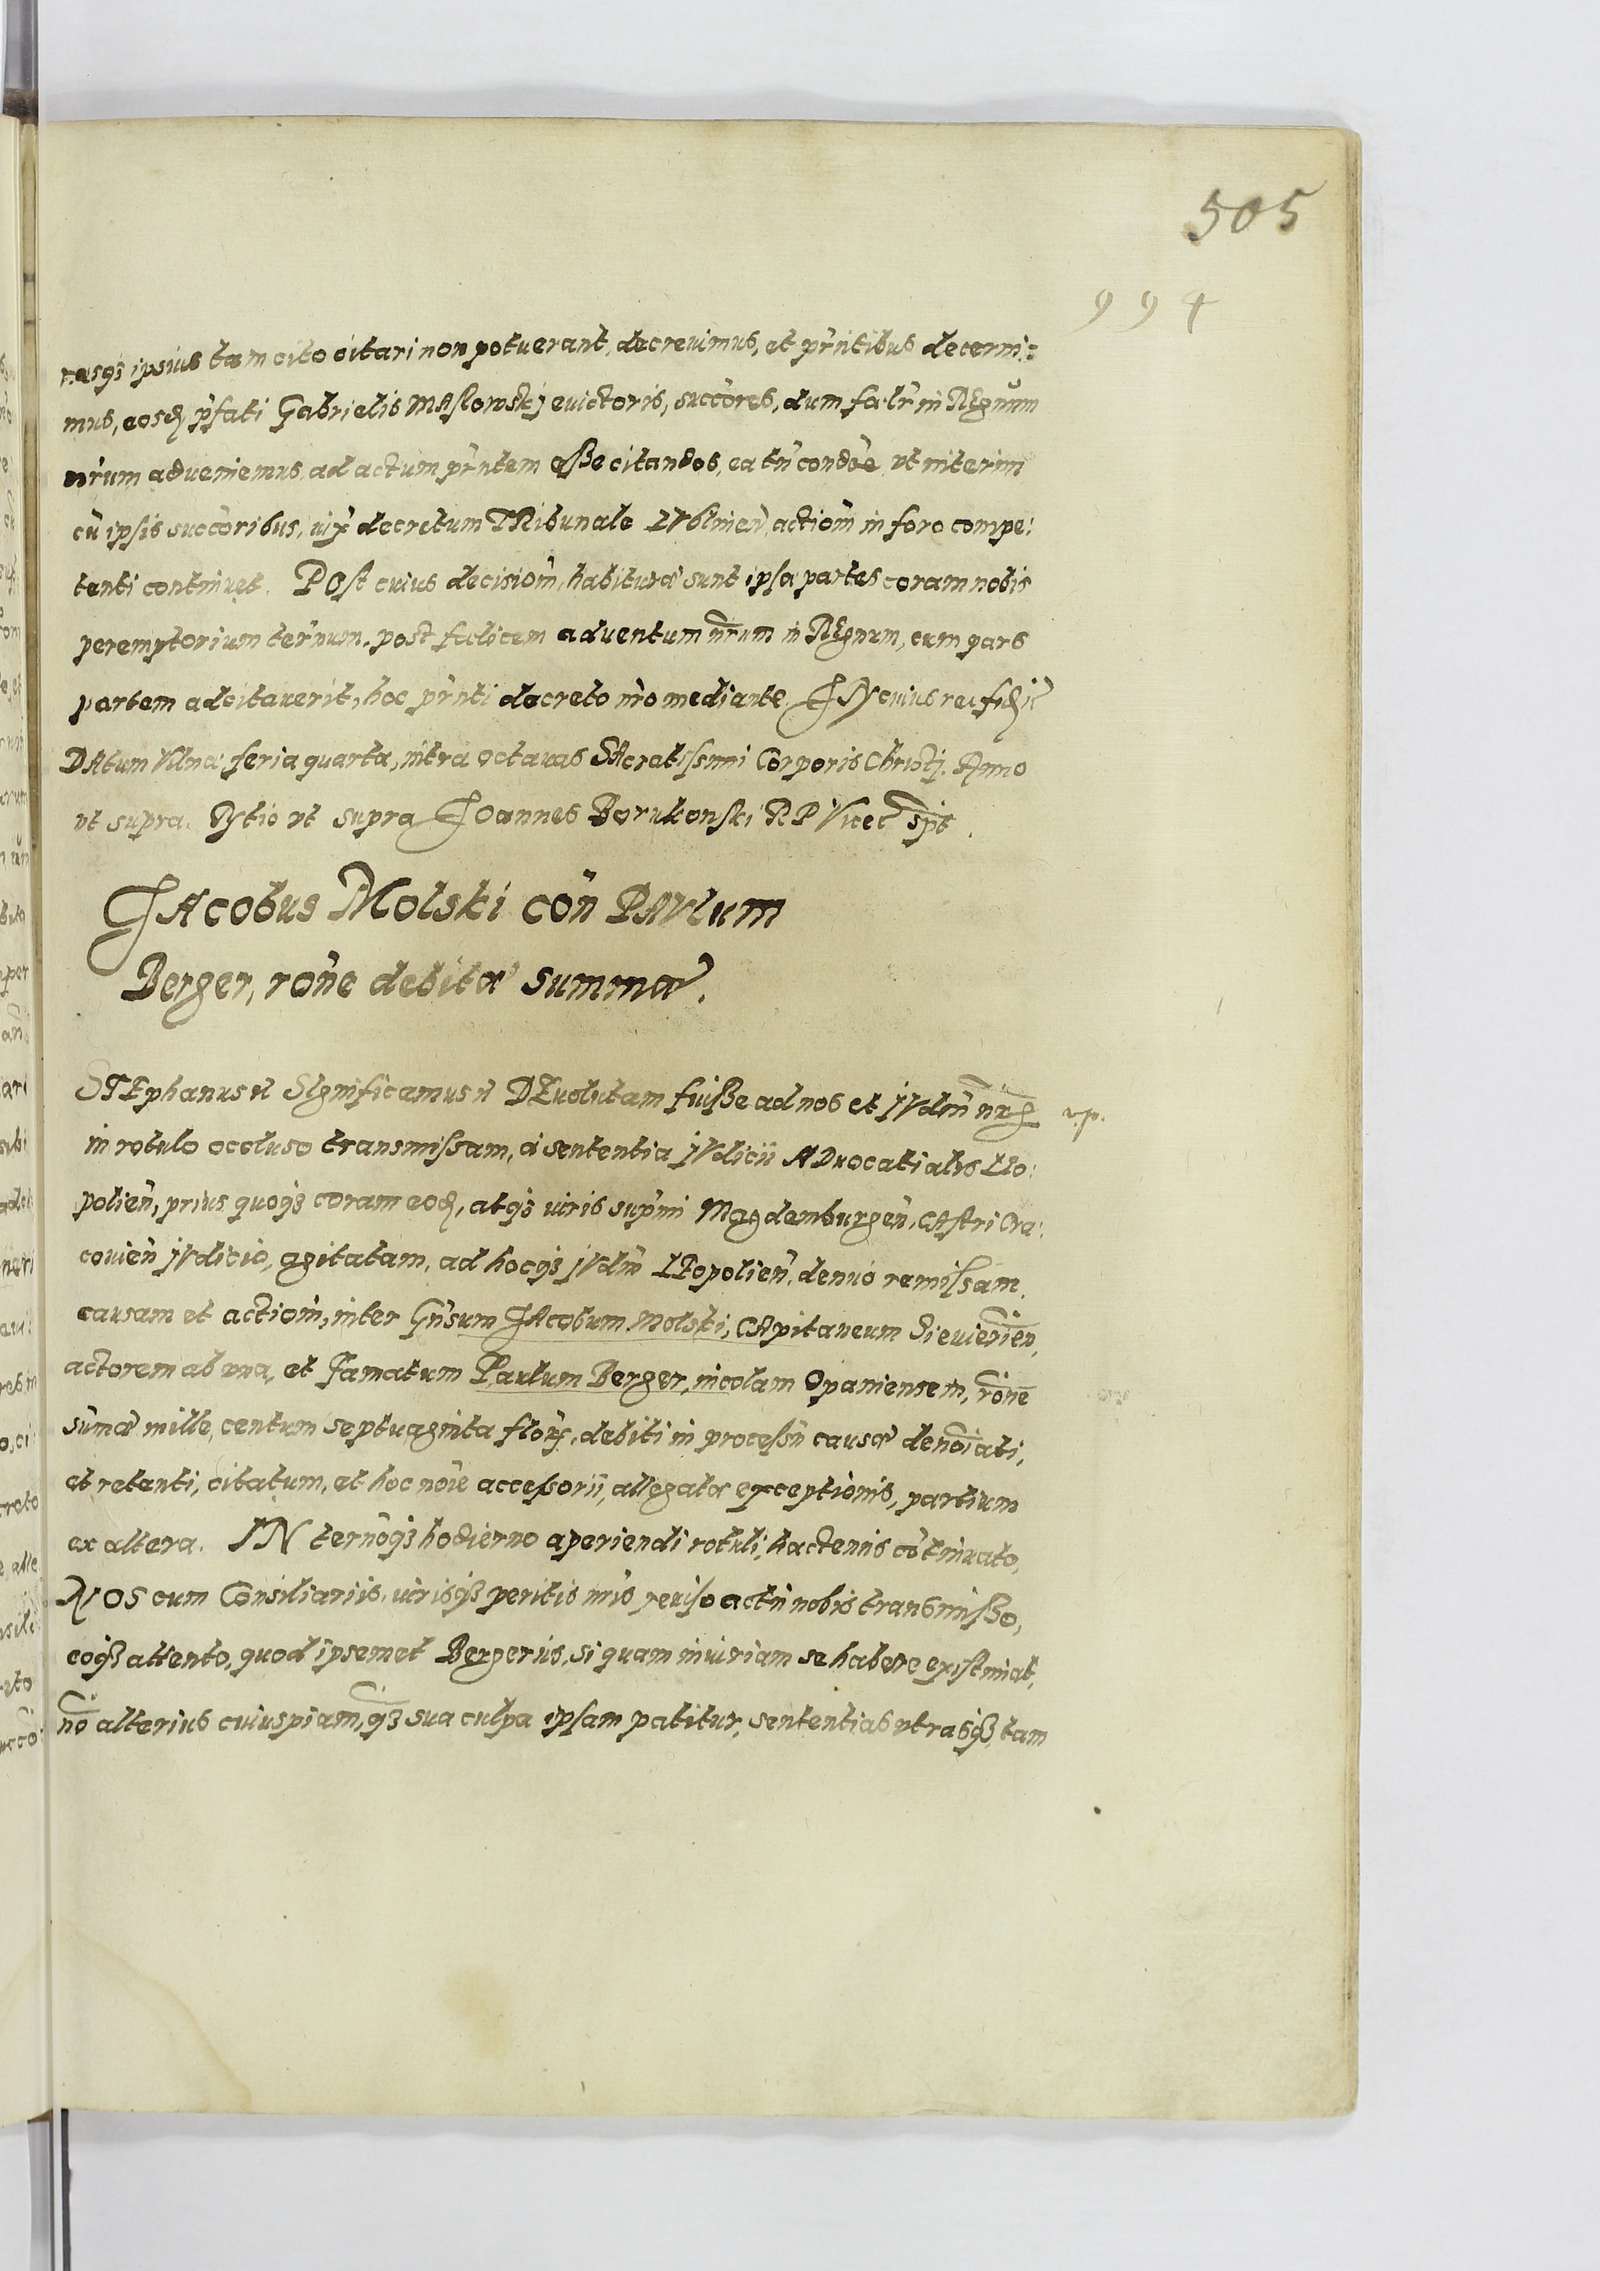 505
994
resqȝ ipsius tam cito citari non potuerant, decreuimus, et prn̄tibus decerni:
mus, eosḑ p̄fati Gabrielis MAſlowskj euictoris, succōres, dum fœlr̄ in REgnum
nr̄um adueniemus, ad actum prn̄tem eſse citandos, ea tn̄ condōe vt interim
cū ipſis succōribus, iux decretum TRibunale LVblinen̄, actiom̄ in foro compe:
tenti continuet. POst cuius decisiom̄, habituræ sunt ipsæ partes coram nobis
peremptorium ter̄num, post fœlicem aduentum nr̄um in REgnum, cum pars
partem adcitauerit, hoc prn̄ti decreto nr̄o mediante. IN cuius rei fidē
DAtum Vilnæ feria quarta, intra octauas SAcratiſsimi Corporis Christj. Anno
vt supra. RItio vt supra JOannes Borukonſki RP Vicec̄ spt̄.
JAcobus Molski con̄ PAVlum
Berger, rōne debitæ summæ.
STEphanus et̄ SIgnificamus et̄ DEuolutam fuiſse ad nos et JVdm̄ nr̄m v.p.
in rotulo occluso transmiſsam, à sententia JVdicii ADuocatialis LEo:
polien̄, prius quoqȝ coram eoḑ, atqȝ iuris supm̄i Magdemburgen̄, CAstri Cra:
couien̄ JVdicio, agitatam, ad hocqȝ JVdm̄ LEopolien̄, denuó remiſsam,
causam et actiom̄, inter Gn̄sum JAcobum Molski, CApitaneum Dieuierien̄,
actorem ab vna, et Famatum Paulum Berger, incolam Opaniensem, rōne
sum̄æ mille, centum septuaginta flor̄, debiti in proceſsū causæ denōiati,
et retenti, citatum, et hoc nōie acceſsorii, allegatæ exceptionis, partium
ex altera. IN ter̄noqȝ hodierno aperiendi rotuli, hactenus cōtinuato,
NOS cum Consiliariis, iurisqȝ peritis nr̄is reuiso actū nobis transmiſso,
eoqȝ attento, quod ipsemet Bergerus, si quam iniuriam se habere existimat,
nō alterius cuiuspiam, qȝ sua culpa ipsam patitur, sententias vtrasqȝ, tam